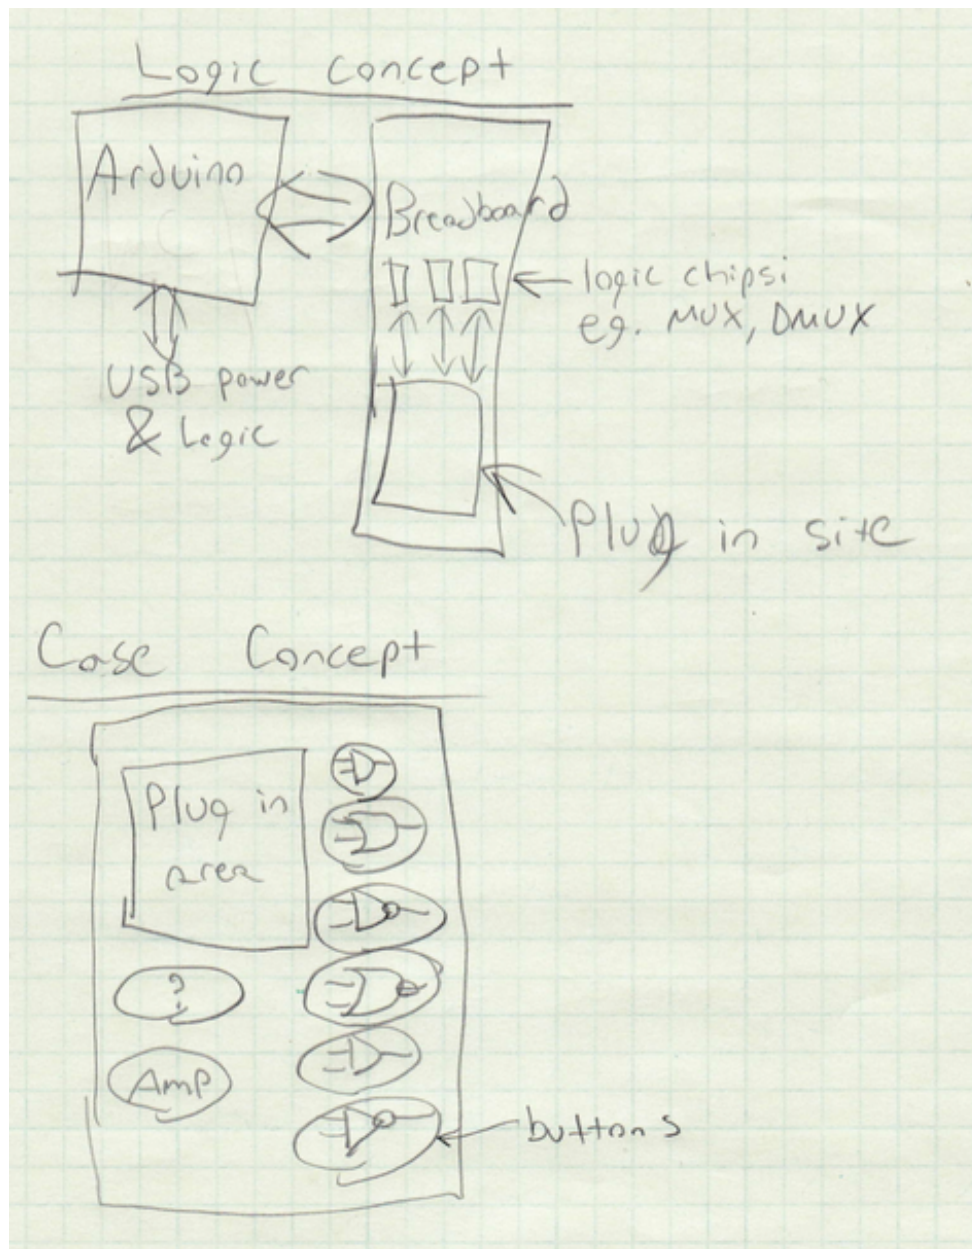 Logic Concept
Arduino
Breadboard
logic chips
eg. MUX, DMUX
USB power
& Logic
Plug in site
Case Concept
Plug in
area
?
Amp
buttons